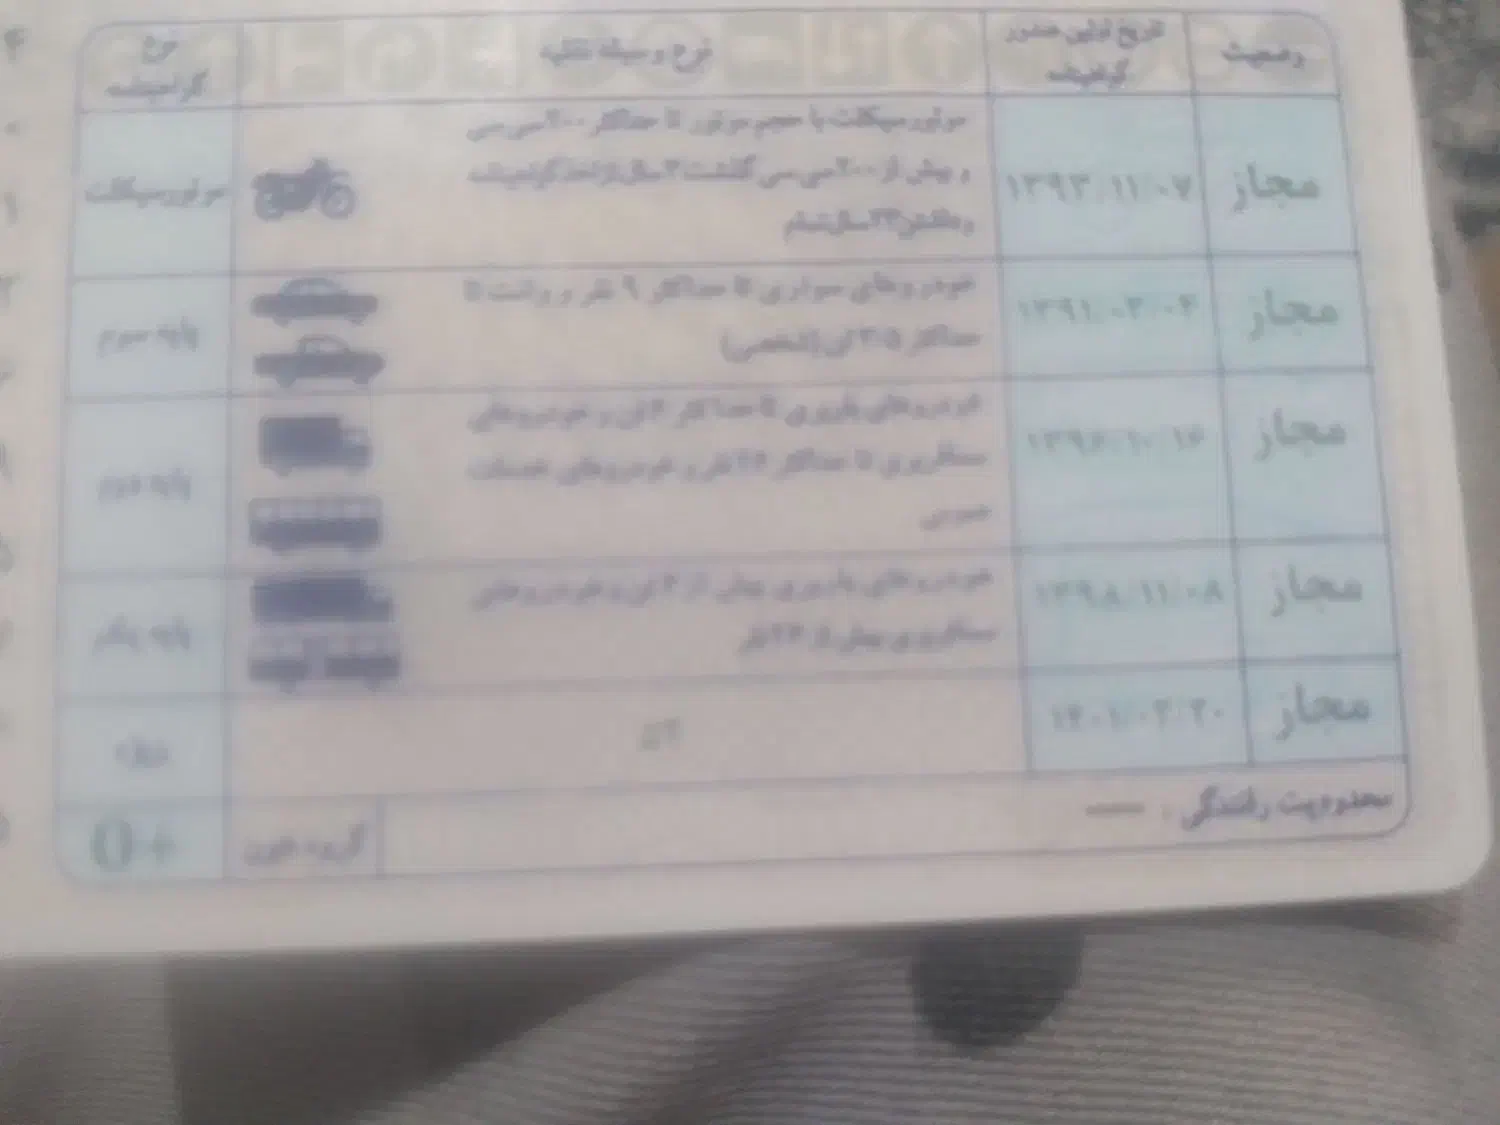 وضعیت
تاریخ اولین صدور
گواهینامه
نوع وسیله نقلیه
نوع
گواهینامه
مجاز
۱۳۹۳/۱۱/۰۷
موتورسیکلت با حجم موتور تا حداکثر ۲۰۰ سی سی
و بیش از ۲۰۰ سی سی گذشت ۲ سال از اخذ گواهینامه
و داشتن ۲۳ سال تمام
موتورسیکلت
مجاز
خودروهای سواری تا حداکثر ۹ نفر و وانت تا
حداکثر ۳/۵ تن (شخصی)
پایه سوم
مجاز
خودروهای باربری تا حداکثر ۶ تن و خودروهای
مسافربری تا حداکثر ۲۶ نفر و خودروهای خدمات
عمومی
پایه دوم
مجاز
۱۳۹۸/۱۱/۰۸
خودروهای باربری بیش از ۶ تن و خودروهای
مسافربری بیش از ۲۶ نفر
پایه یکم
مجاز
ویژه
محدودیت رانندگی :
گروه خون
O+